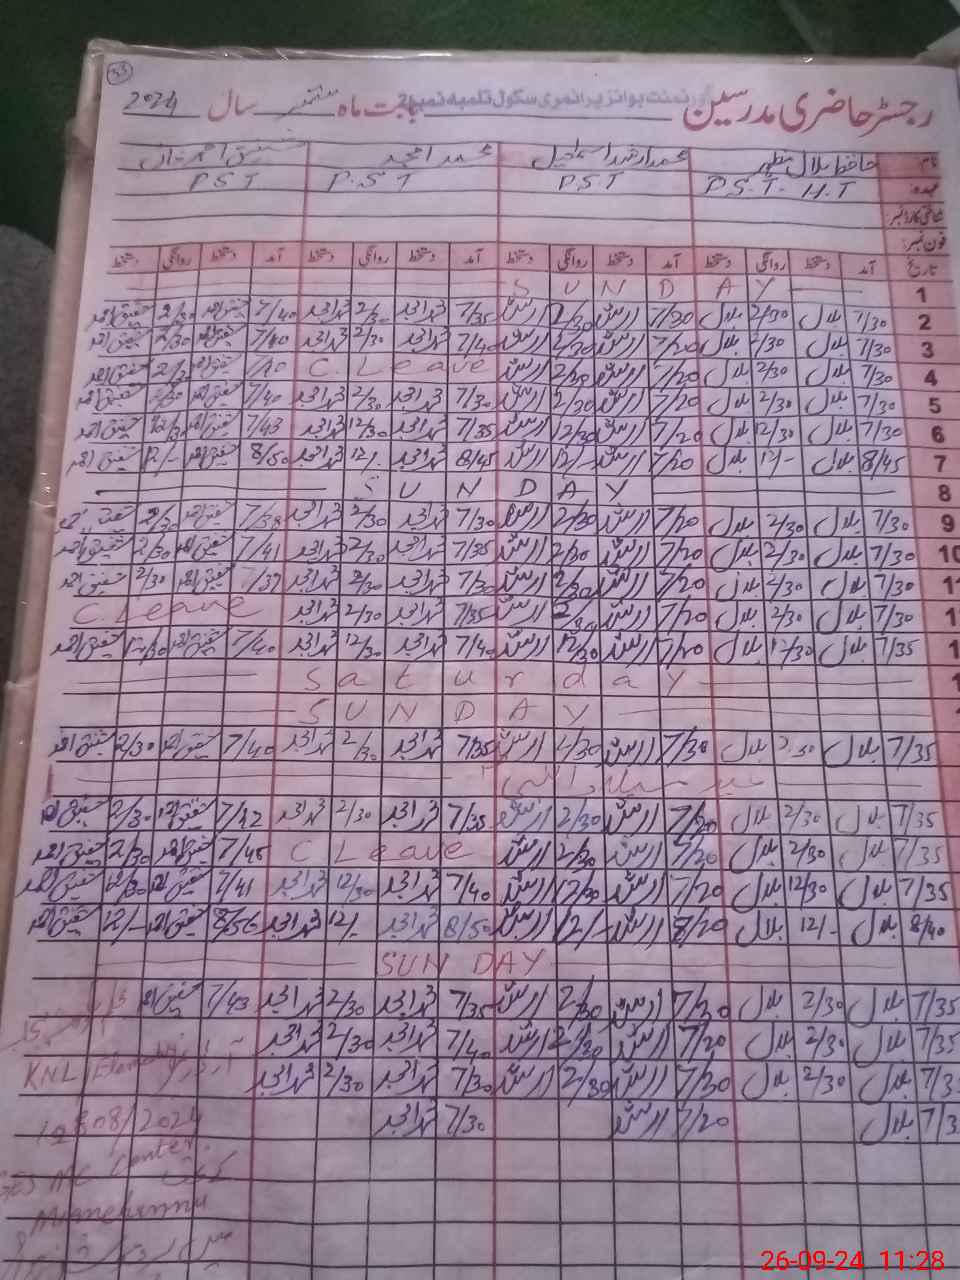 33
رجسٹر حاضری مدرسین گورنمنٹ بوائز پرائمری سکول تلمبہ نمبر 2 بابت ماہ ستمبر سال 2024
نام حافظ بلال مظہر محمد ارشد اسماعیل محمد امجد
عہدہ P.S.T - H.T P.S.T P.S.T P.S.T
شناختی کارڈ نمبر
فون نمبر:
تاریخ آمد دستخط روانگی دستخط آمد دستخط روانگی دستخط آمد دستخط روانگی دستخط آمد دستخط روانگی دستخط
1 SUNDAY
2 7/30 بلال 2/30 بلال 7/20 ارشد 2/30 ارشد 7/35 محمد امجد 2/30 محمد امجد 7/40 شفیق احمد 2/30 شفیق احمد
3 7/30 بلال 2/30 بلال 7/20 ارشد 2/30 ارشد 7/40 محمد امجد 2/30 محمد امجد 7/40 شفیق احمد 2/30 شفیق احمد
4 7/30 بلال 2/30 بلال 7/20 ارشد 2/30 ارشد C. Leave 7/40 شفیق احمد 2/30 شفیق احمد
5 7/30 بلال 2/30 بلال 7/20 ارشد 2/30 ارشد 7/30 محمد امجد 2/30 محمد امجد 7/40 شفیق احمد 2/30 شفیق احمد
6 7/30 بلال 12/30 بلال 7/20 ارشد 12/30 ارشد 7/35 محمد امجد 12/30 محمد امجد 7/43 شفیق احمد 12/30 شفیق احمد
7 8/45 بلال 12/- بلال 7/20 ارشد 12/- ارشد 8/45 محمد امجد 12/- محمد امجد 8/50 شفیق احمد 12/- شفیق احمد
8 SUNDAY
9 7/30 بلال 2/30 بلال 7/20 ارشد 2/30 ارشد 7/30 محمد امجد 2/30 محمد امجد 7/38 شفیق احمد 2/30 شفیق احمد
10 7/30 بلال 2/30 بلال 7/20 ارشد 2/30 ارشد 7/35 محمد امجد 2/30 محمد امجد 7/41 شفیق احمد 2/30 شفیق احمد
1 7/30 بلال 2/30 بلال 7/20 ارشد 2/30 ارشد 7/30 محمد امجد 2/30 محمد امجد 7/37 شفیق احمد 2/30 شفیق احمد
1 7/30 بلال 2/30 بلال 7/20 ارشد 2/30 ارشد 7/35 محمد امجد 2/30 محمد امجد C. Leave
1 7/35 بلال 12/30 بلال 7/20 ارشد 12/30 ارشد 7/40 محمد امجد 12/30 محمد امجد 7/40 شفیق احمد 12/30 شفیق احمد
1 Saturday
SUNDAY
7/35 بلال 2/30 بلال 7/30 ارشد 2/30 ارشد 7/35 محمد امجد 2/30 محمد امجد 7/40 شفیق احمد 2/30 شفیق احمد
عید میلاد النبی
7/35 بلال 2/30 بلال 7/20 ارشد 2/30 ارشد 7/35 محمد امجد 2/30 محمد امجد 7/42 شفیق احمد 2/30 شفیق احمد
7/35 بلال 2/30 بلال 7/20 ارشد 2/30 ارشد C Leave 7/45 شفیق احمد 2/30 شفیق احمد
7/35 بلال 12/30 بلال 7/20 ارشد 12/30 ارشد 7/40 محمد امجد 12/30 محمد امجد 7/41 شفیق احمد 12/30 شفیق احمد
8/40 بلال 12/- بلال 8/20 ارشد 12/- ارشد 8/50 محمد امجد 12/- محمد امجد 8/56 شفیق احمد 12/- شفیق احمد
SUNDAY
7/35 بلال 2/30 بلال 7/20 ارشد 2/30 ارشد 7/35 محمد امجد 2/30 محمد امجد 7/43 شفیق احمد
7/35 بلال 2/30 بلال 7/20 ارشد 2/30 ارشد 7/40 محمد امجد 2/30 محمد امجد
بلال 2/30 بلال 7/20 ارشد 2/30 ارشد 7/30 محمد امجد 2/30 محمد امجد
بلال 7/20 ارشد 7/30 محمد امجد
08/2024
Center
26-09-24 11:28